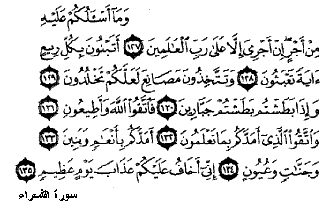 وَمَآ أَسْـَٔلُكُمْ عَلَيْهِ
مِنْ أَجْرٍ إِنْ أَجْرِىَ إِلَّا عَلَىٰ رَبِّ الْعَٰلَمِينَ ١٢٧ أَتَبْنُونَ بِكُلِّ رِيعٍ
ءَايَةً تَعْبَثُونَ ١٢٨ وَتَتَّخِذُونَ مَصَانِعَ لَعَلَّكُمْ تَخْلُدُونَ ١٢٩
وَإِذَا بَطَشْتُم بَطَشْتُمْ جَبَّارِينَ ١٣٠ فَاتَّقُوا اللَّهَ وَأَطِيعُونِ ١٣١
وَاتَّقُوا الَّذِىٓ أَمَدَّكُم بِمَا تَعْلَمُونَ ١٣٢ أَمَدَّكُم بِأَنْعَٰمٍ وَبَنِينَ ١٣٣
وَجَنَّٰتٍ وَعُيُونٍ ١٣٤ إِنِّىٓ أَخَافُ عَلَيْكُمْ عَذَابَ يَوْمٍ عَظِيمٍ ١٣٥
سورة الشعراء